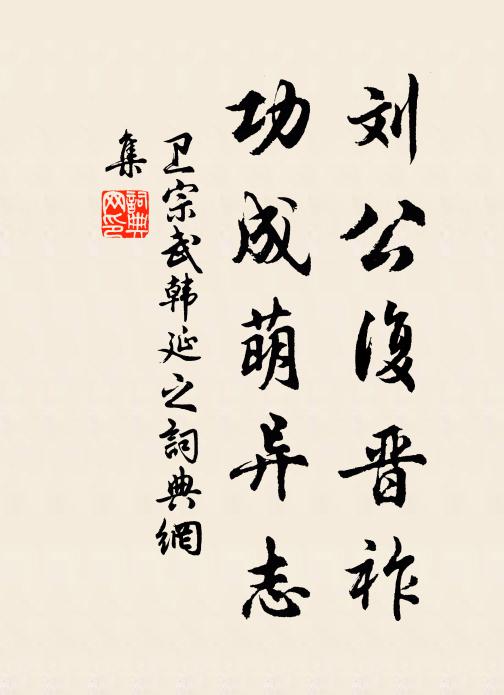 刘公復晋祚
功成萌异志
卫宗武韩延之詞典網
集
詞典网印